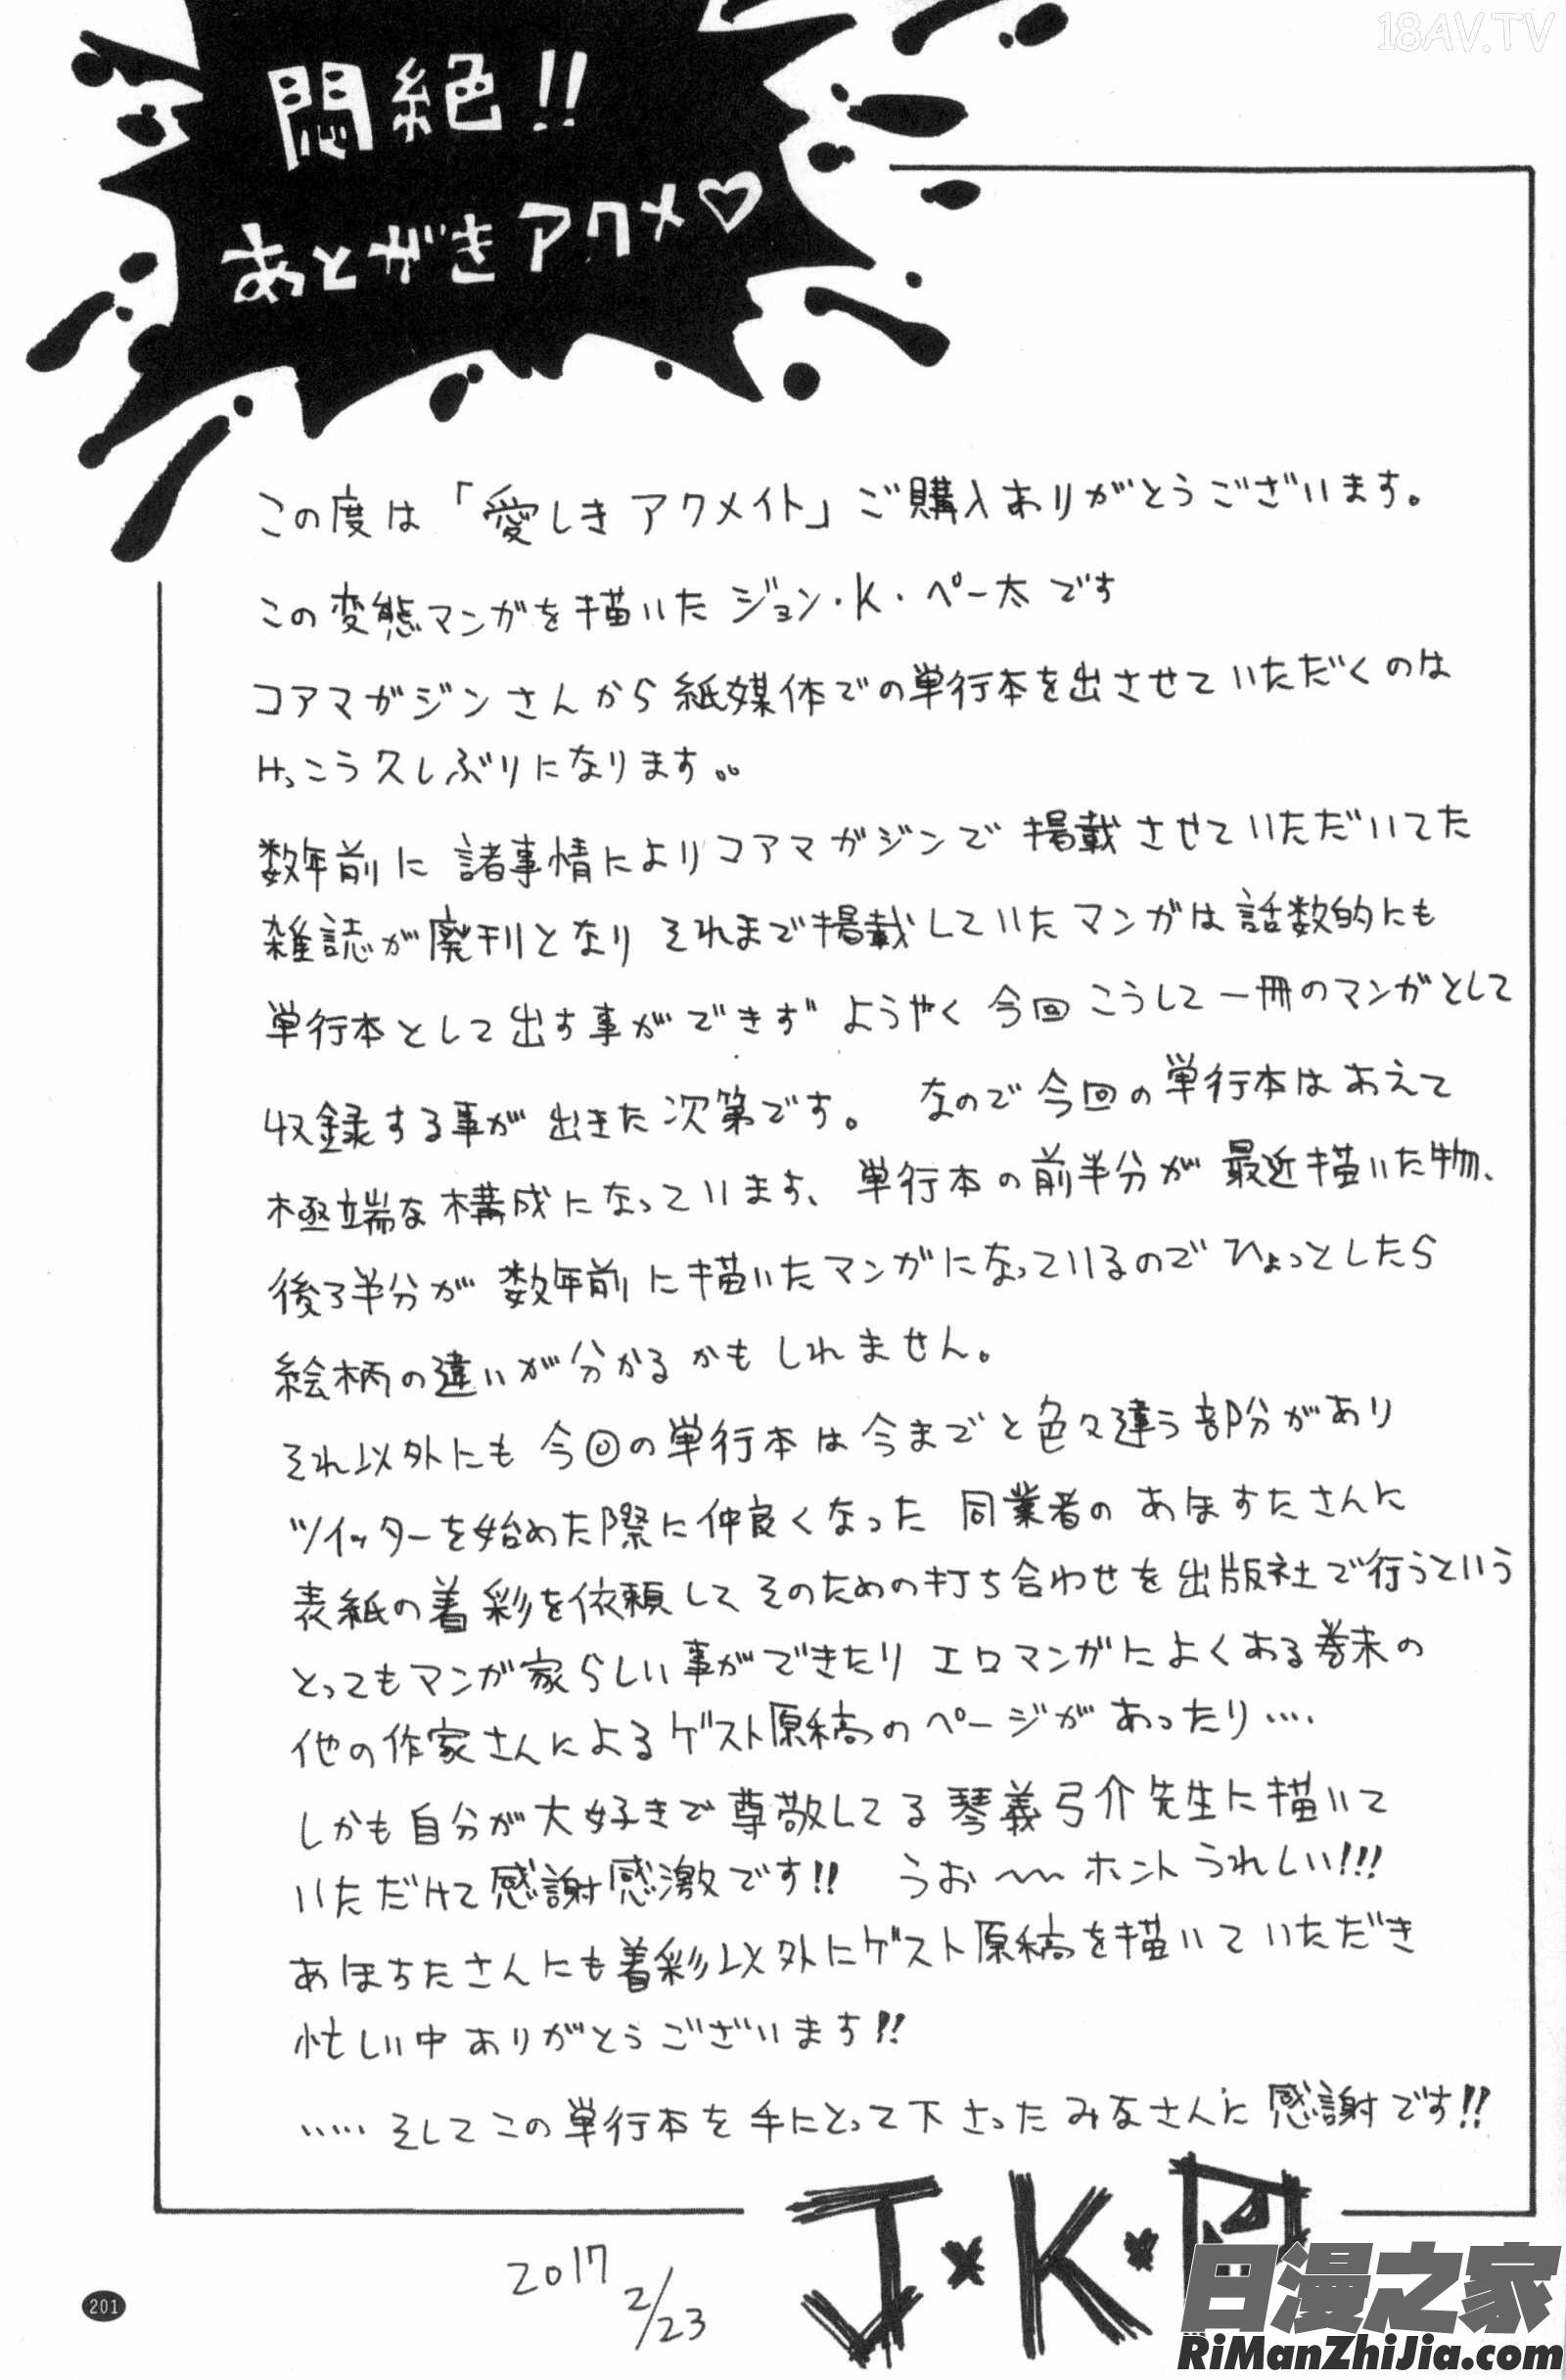 18AV.TV
悶絶!!
あとがきアクメ♡
この度は「愛しきアクメイト」ご購入ありがとうございます。
この変態マンガを描いたジョン・K・ペー太です
コアマガジンさんから紙媒体での単行本を出させていただくのは
けっこう久しぶりになります。。
数年前に諸事情によりコアマガジンで掲載させていただいてた
雑誌が廃刊となり それまで掲載していたマンガは話数的にも
単行本として出す事ができず ようやく今回こうして一冊のマンガとして
収録する事が出きた次第です。 なので今回の単行本はあえて
極端な構成になっています、単行本の前半分が最近描いた物、
後ろ半分が数年前に描いたマンガになっているのでひょっとしたら
絵柄の違いが分かるかもしれません。
それ以外にも今回の単行本は今までと色々違う部分があり
ツイッターを始めた際に仲良くなった 同業者のあほすたさんに
表紙の着彩を依頼して そのための打ち合わせを出版社で行うという
とってもマンガ家らしい事ができたり エロマンガによくある巻末の
他の作家さんによるゲスト原稿のページがあったり・・・・
しかも自分が大好きで尊敬してる琴義弓介先生に描いて
いただけて感謝感激です!! うお〜〜ホントうれしい!!!
あほすたさんにも着彩以外にゲスト原稿を描いていただき
忙しい中ありがとうございます!!
・・・・・そしてこの単行本を手にとって下さったみなさんに感謝です!!
J×K×P
2017 2/23
201
日漫之家
RiManZhiJia.com